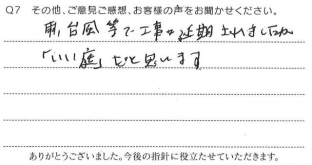 Q7 その他、ご意見ご感想、お客様の声をお聞かせください。
雨、台風等で工事が延期されましたが
「いい庭」だと思います
ありがとうございました。今後の指針に役立たせていただきます。